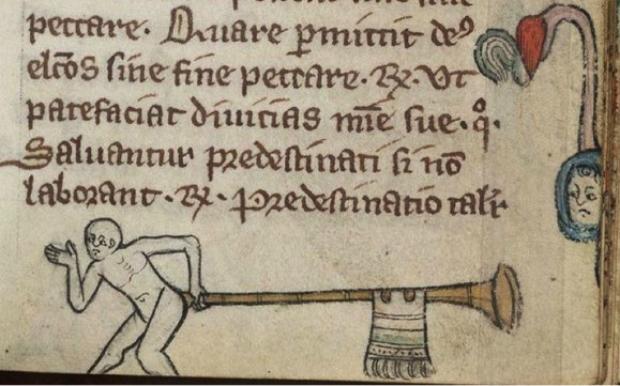 peccare. Quare ꝑmittit deꝰ
elcōs sine fine peccare. ℞. Vt
patefaciat diuicias mīe sue. q̊.
Saluantur predestinati si nō
laborant. ℞. Predestinatio talit̾